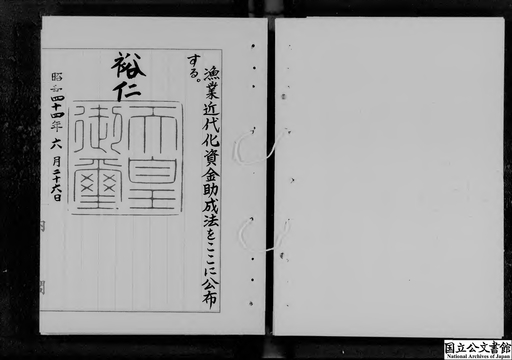 漁業近代化資金助成法をここに公布
する。
裕仁
天皇
御璽
昭和四十四年六月二十六日
内閣
国立公文書館
National Archives of Japan